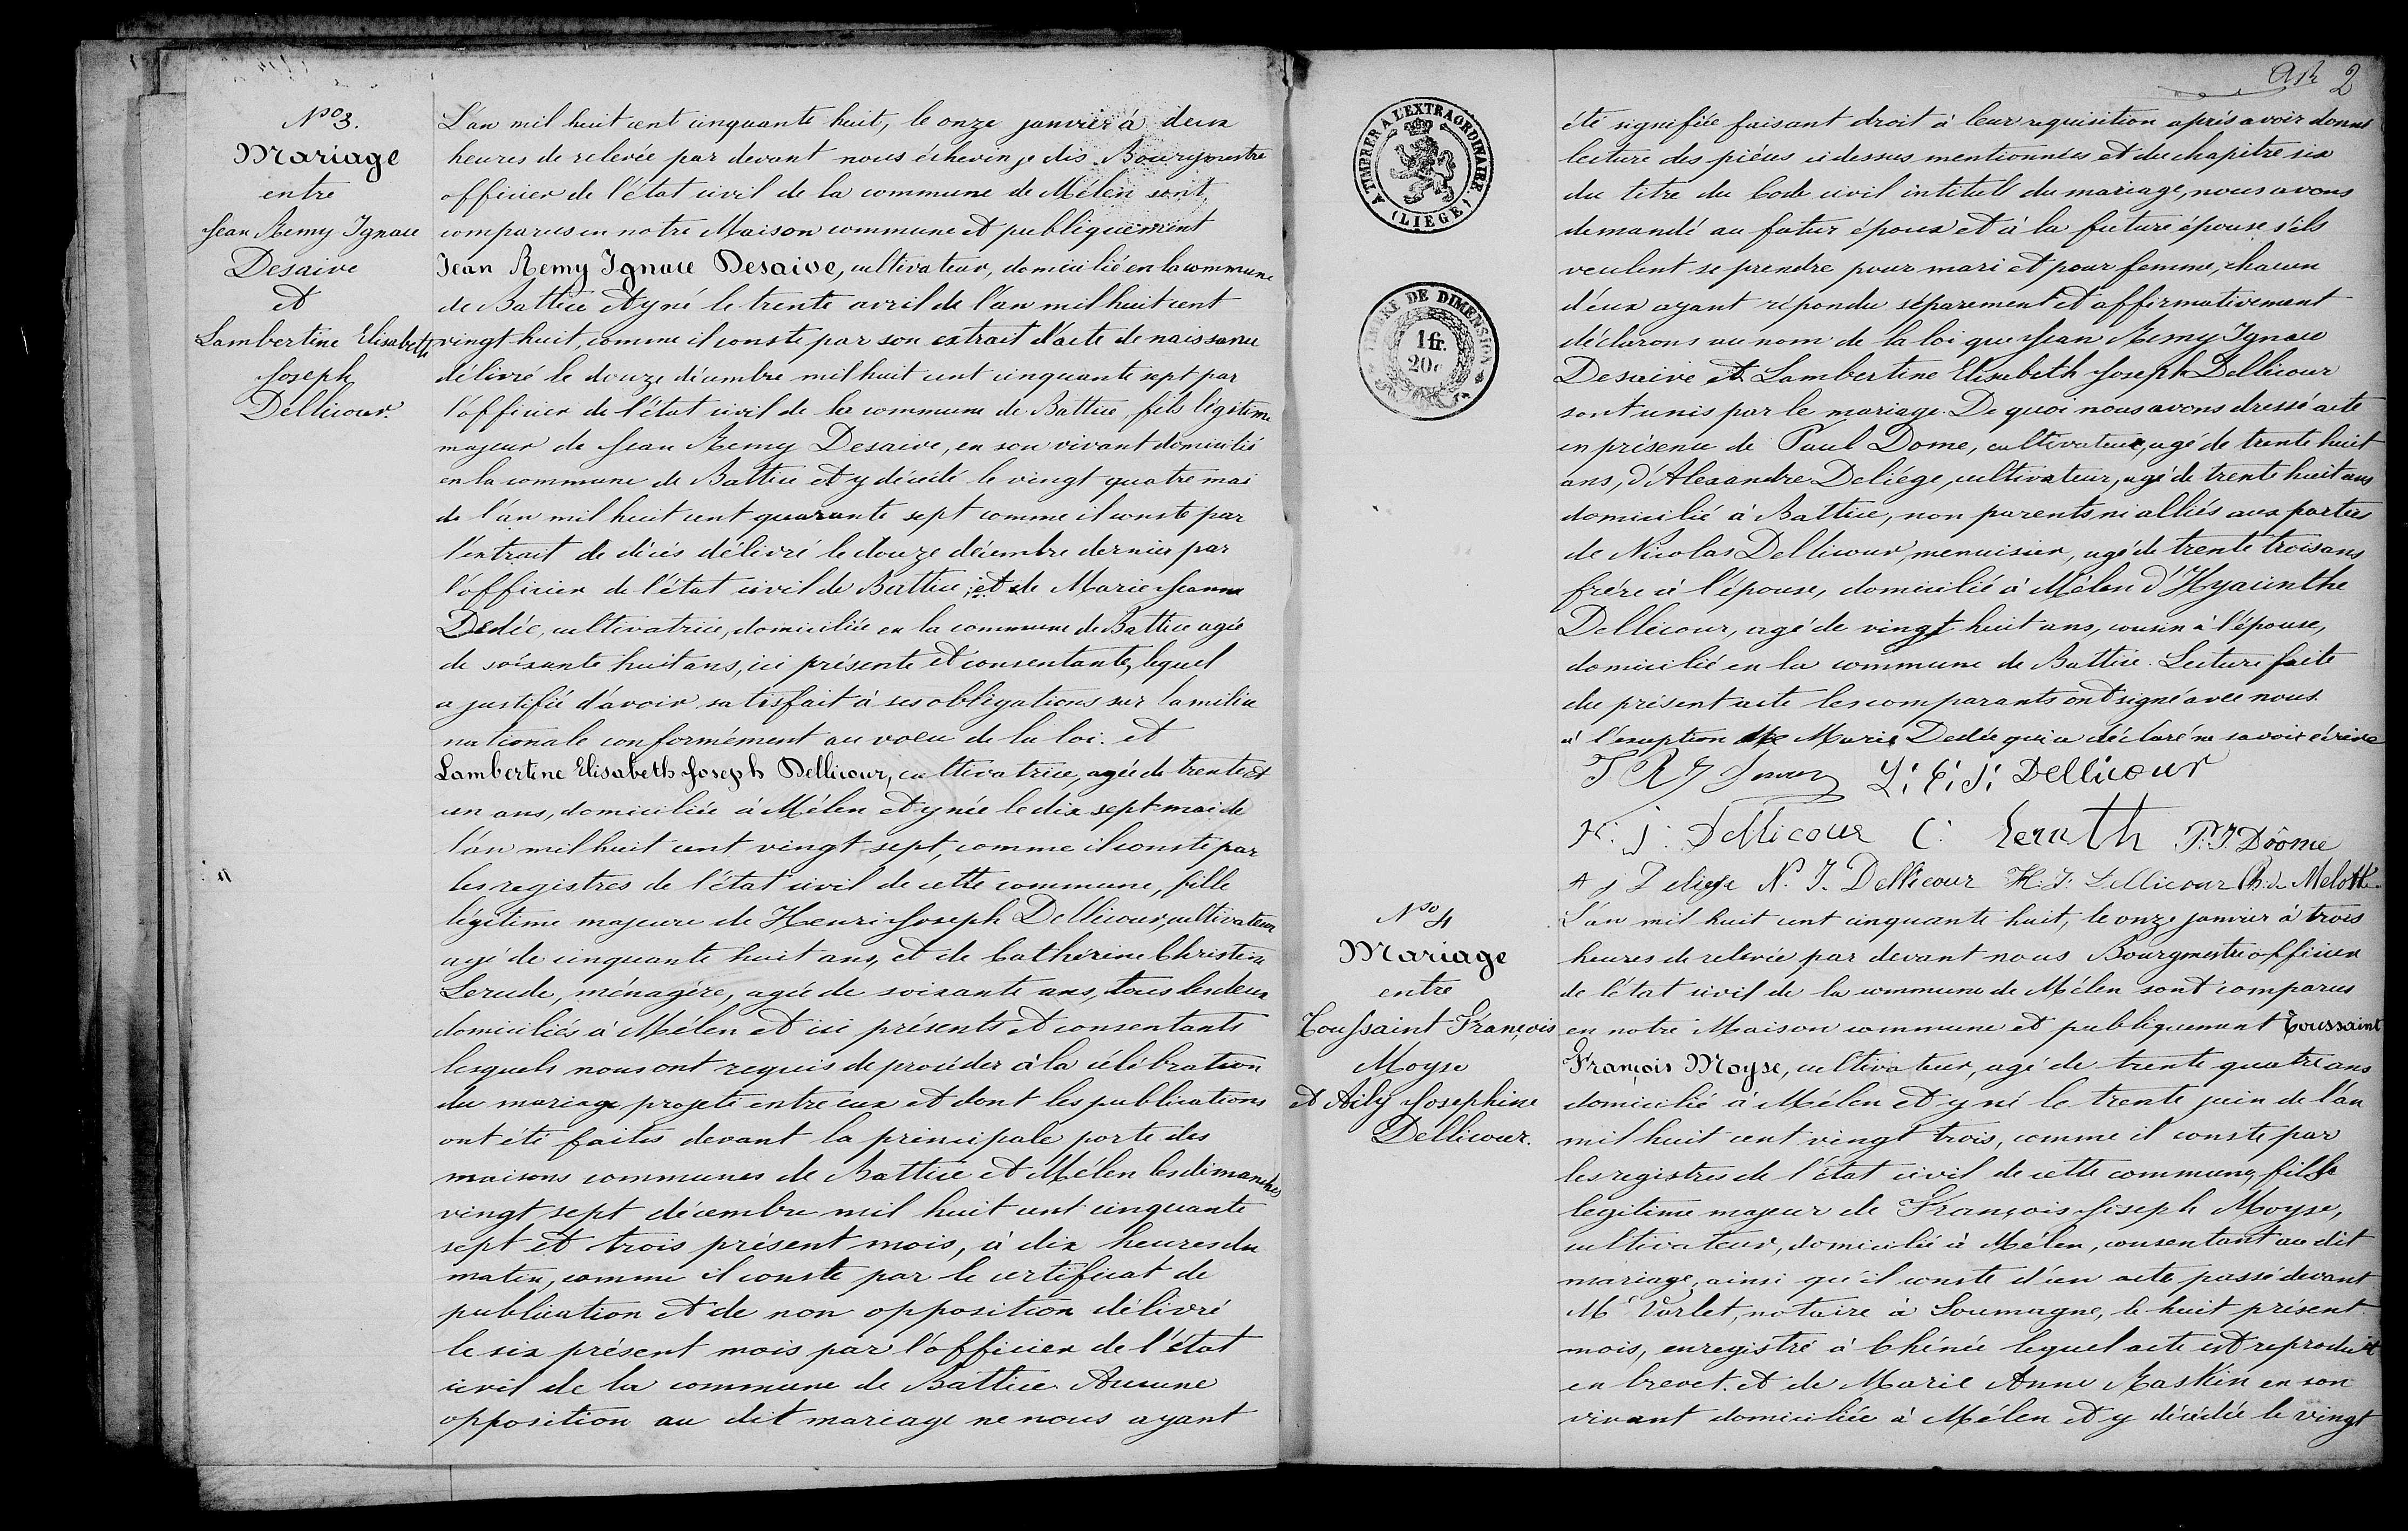 Nº 3.
Mariage
entre
Jean Remy Ignace
Desaive
et
Lambertine Elisabeth
Joseph
Dellicour.
L'an mil huit cent cinquante huit, le onze janvier à deux
heures de relevée par devant nous échevin je dis Bourgmestre
officier de l'état civil de la commune de Mélen sont
comparus en notre Maison commune et publiquement
Jean Remy Ignace Desaive, cultivateur, domicilié en la commune
de Battice et y né le trente avril de l'an mil huit cent
vingt huit, comme il conste par son extrait d'acte de naissance
délivré le douze décembre mil huit cent cinquante sept par
l'officier de l'état civil de la commune de Battice, fils légitime
majeur de Jean Remy Desaive, en son vivant domicilié
en la commune de Battice et y décédé le vingt quatre mai
de l'an mil huit cent quarante sept comme il conste par
l'extrait de décès délivré le douze décembre dernier par
l'officier de l'état civil de Battice; et de Marie Jeanne
Dedée, cultivatrice, domiciliée en la commune de Battice agée
de soixante huit ans, ici présente et consentante, lequel
a justifié d'avoir satisfait à ses obligations sur la milice
nationale conformément au voeu de la loi. et
Lambertine Elisabeth Joseph Dellicour, cultivatrice, agée de trente et
un ans, domiciliée à Mélen et y née le dix sept mai de
l'an mil huit cent vingt sept, comme il conste par
les registres de l'état civil de cette commune, fille
légitime majeure de Henri Joseph Dellicour, cultivateur
agé de cinquante huit ans, et de Cathérine Christine
Lerude, ménagère, agée de soixante ans, tous les deux
domiciliés à Mélen et ici présents et consentants
lesquels nous ont requis de procéder à la célébration
du mariage projeté entre eux et dont les publications
ont été faites devant la principale porte des
maisons communes de Battice et Mélen les dimanches
vingt sept décembre mil huit cent cinquante
sept et trois présent mois, à dix heures du
matin, comme il conste par le certificat de
publication et de non opposition délivré
le six présent mois par l'officier de l'état
civil de la commune de Battice. Aucune
opposition au dit mariage ne nous ayant
2
A TIMBRER A L'EXTRAORDINAIRE
(LIEGE)
TIMBRE DE DIMENSION
1 fr.
20 c
été signifiée faisant droit à leur requisition après avoir donné
lecture des pièces ci dessus mentionnées et du chapitre six
du titre du Code civil intitulé du mariage, nous avons
demandé au futur époux et à la future épouse s'ils
veulent se prendre pour mari et pour femme, chacun
d'eux ayant répondu séparement et affirmativement
déclarons au nom de la loi que Jean Remy Ignace
Desaive et Lambertine Elisabeth Joseph Dellicour
sont unis par le mariage. De quoi nous avons dressé acte
en présence de Paul Dome, cultivateur, agé de trente huit
ans, d'Alexandre Deliége, cultivateur, agé de trente huit ans
domicilié à Battice, non parents ni alliés aux parties
de Nicolas Dellicour, menuisier, agé de trente trois ans
frère à l'épouse, domicilié à Mélen d'Hyacinthe
Dellicour, agé de vingt huit ans, cousin à l'épouse,
domicilié en la commune de Battice. Lecture faite
du présent acte les comparants ont signé avec nous.
à l'exception de Marie Dedée qui a déclaré ne savoir écrire
L: E: J: Dellicour
H: J: Dellicour C: P: J. Dôome
A J Deliege N. J. Dellicour H: J: Dellicour Ch: de Melotte
Nº 4
Mariage
entre
Toussaint François
Moyse
et Aily Josephine
Dellicour.
L'an mil huit cent cinquante huit, le onze janvier à trois
heures de relevée par devant nous Bourgmestre officier
de l'état civil de la commune de Mélen sont comparus
en notre Maison commune et publiquement Toussaint
François Moyse, cultivateur, agé de trente quatre ans
domicilié à Mélen et y né le trente juin de l'an
mil huit cent vingt trois, comme il conste par
les registres de l'état civil de cette commune, fils
légitime majeur de François Joseph Moyse,
cultivateur, domicilié à Mélen, consentant au dit
mariage, ainsi qu'il conste d'un acte passé devant
Me Vorlet, notaire à Soumagne, le huit présent
mois, enregistré à Chénée lequel acte est reproduit
en brevet. et de Marie Anne Raskin en son
vivant domiciliée à Mélen et y décédée le vingt